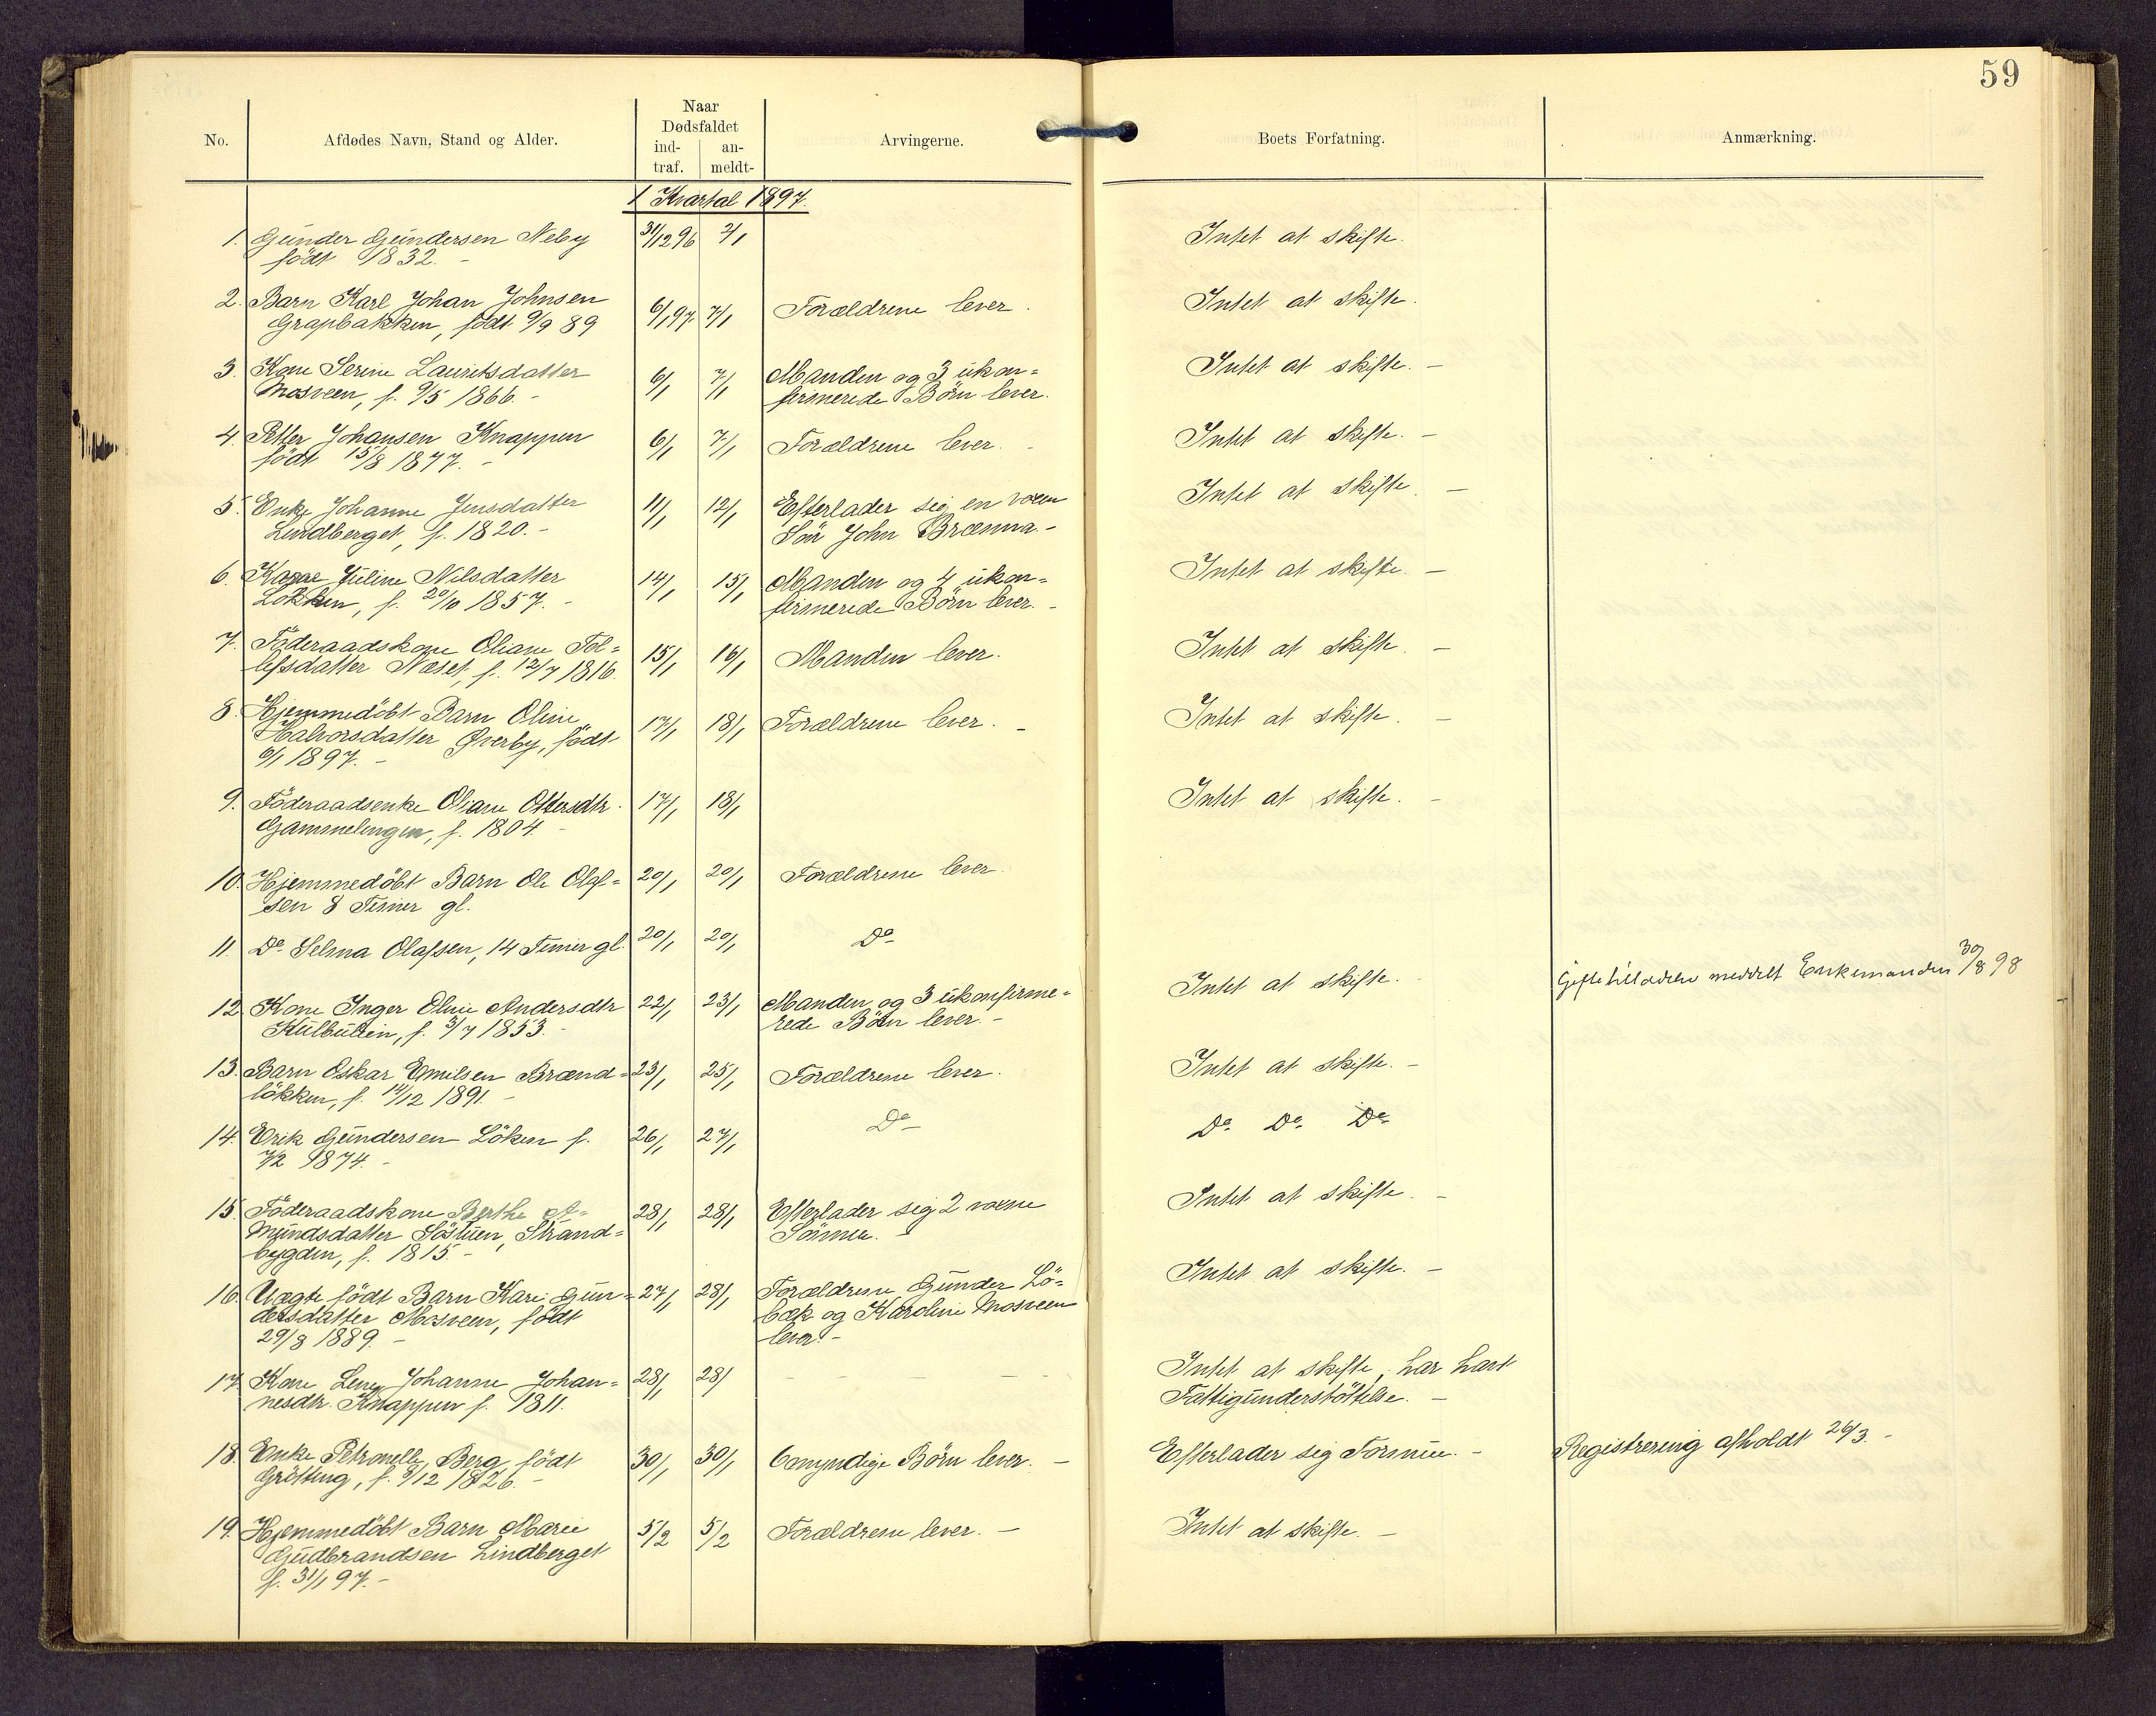 59
No. Afdødes Navn, Stand og Alder. Naar Dødsfaldet ind-traf. an-meldt- Arvingerne. Boets Forfatning. Anmærkning.
1 Kvartal 1897.
1. Gunder Gundersen Neby 31/12 96 2/1 Intet at skifte.
født 1832. -
2. Barn Karl Johan Johnsen 6/1 97 7/1 Forældrene lever. Intet at skifte.
Grapbakken, født 9/9 89
3. Kone Serine Lauritsdatter 6/1 7/1 Manden og 3 ukon= Intet at skifte. -
Mosveen, f. 9/5 1866. - firmerede Børn lever.
4. Petter Johansen Knappen 6/1 7/1 Forældrene lever. - Intet at skifte. -
født 15/8 1877. -
5. Enke Johanne Jensdatter 11/1 12/1 Efterlader sig en voxen Intet at skifte. -
Lindberget, f. 1820. - Søn John Brænna. -
6. Kone Juline Nilsdatter 14/1 15/1 Manden og 4 ukon= Intet at skifte. -
Løkken, f. 20/10 1857. - firmerede Børn lever. -
7. Føderaadskone Oliane Tol= 15/1 16/1 Manden lever. Intet at skifte. -
lefsdatter Næset, f. 12/7 1816.
8. Hjemmedøbt Barn Oline 17/1 18/1 Forældrene lever. - Intet at skifte. -
Halvorsdatter Øverby, født
6/1 1897. -
9. Føderaadsenke Oliane Ottersdtr. 17/1 18/1 Intet at skifte. -
Gammelengen, f. 1804. -
10. Hjemmedøbt Barn Ole Olaf= 20/1 20/1 Forældrene lever.
sen 8 Timer gl.
11. Do Selma Olafsen, 14 Timer gl. 20/1 20/1 Do
12. Kone Inger Oline Andersdtr 22/1 23/1 Manden og 3 ukonfirme= Intet at skifte. Giftetilladelse meddelt Enkemanden 30/8 98
Kulbulien, f. 3/7 1853. - rede Børn lever. -
13. Barn Oskar Emilsen Brænd= 23/1 25/1 Forældrene lever. Intet at skifte. -
løkken, f. 14/12 1891. -
14. Erik Gundersen Løken f. 26/1 27/1 Do Do Do Do
7/2 1874. -
15. Føderaadskone Berthe A= 28/1 28/1 Efterlader sig 2 voxne Intet at skifte. -
mundsdatter Søstuen, Strand= Sønner.
bygden, f. 1815 -
16. Uægte født Barn Kari Gun= 27/1 28/1 Forældrene Gunder Lø= Intet at skifte. -
dersdatter Mosveen, født bæk og Karoline Mosveen
29/8 1889. - lever. -
17. Kone Lene Johanne Johan= 28/1 28/ - - - - Intet at skifte, har havt
nesdtr. Knappen f. 1811. Fattigunderstøttelse. -
18. Enke Petronelle Berg, født 30/1 30/1 6 myndige Børn lever. - Efterlader sig Formue. - Registrering afholdt 26/3. -
Grøtting, f. 9/12 1826. -
19. Hjemmedøbt Barn Marie 5/2 5/2 Forældrene lever. - Intet at skifte. -
Gudbrandsen Lindberget
f. 31/1 97. -